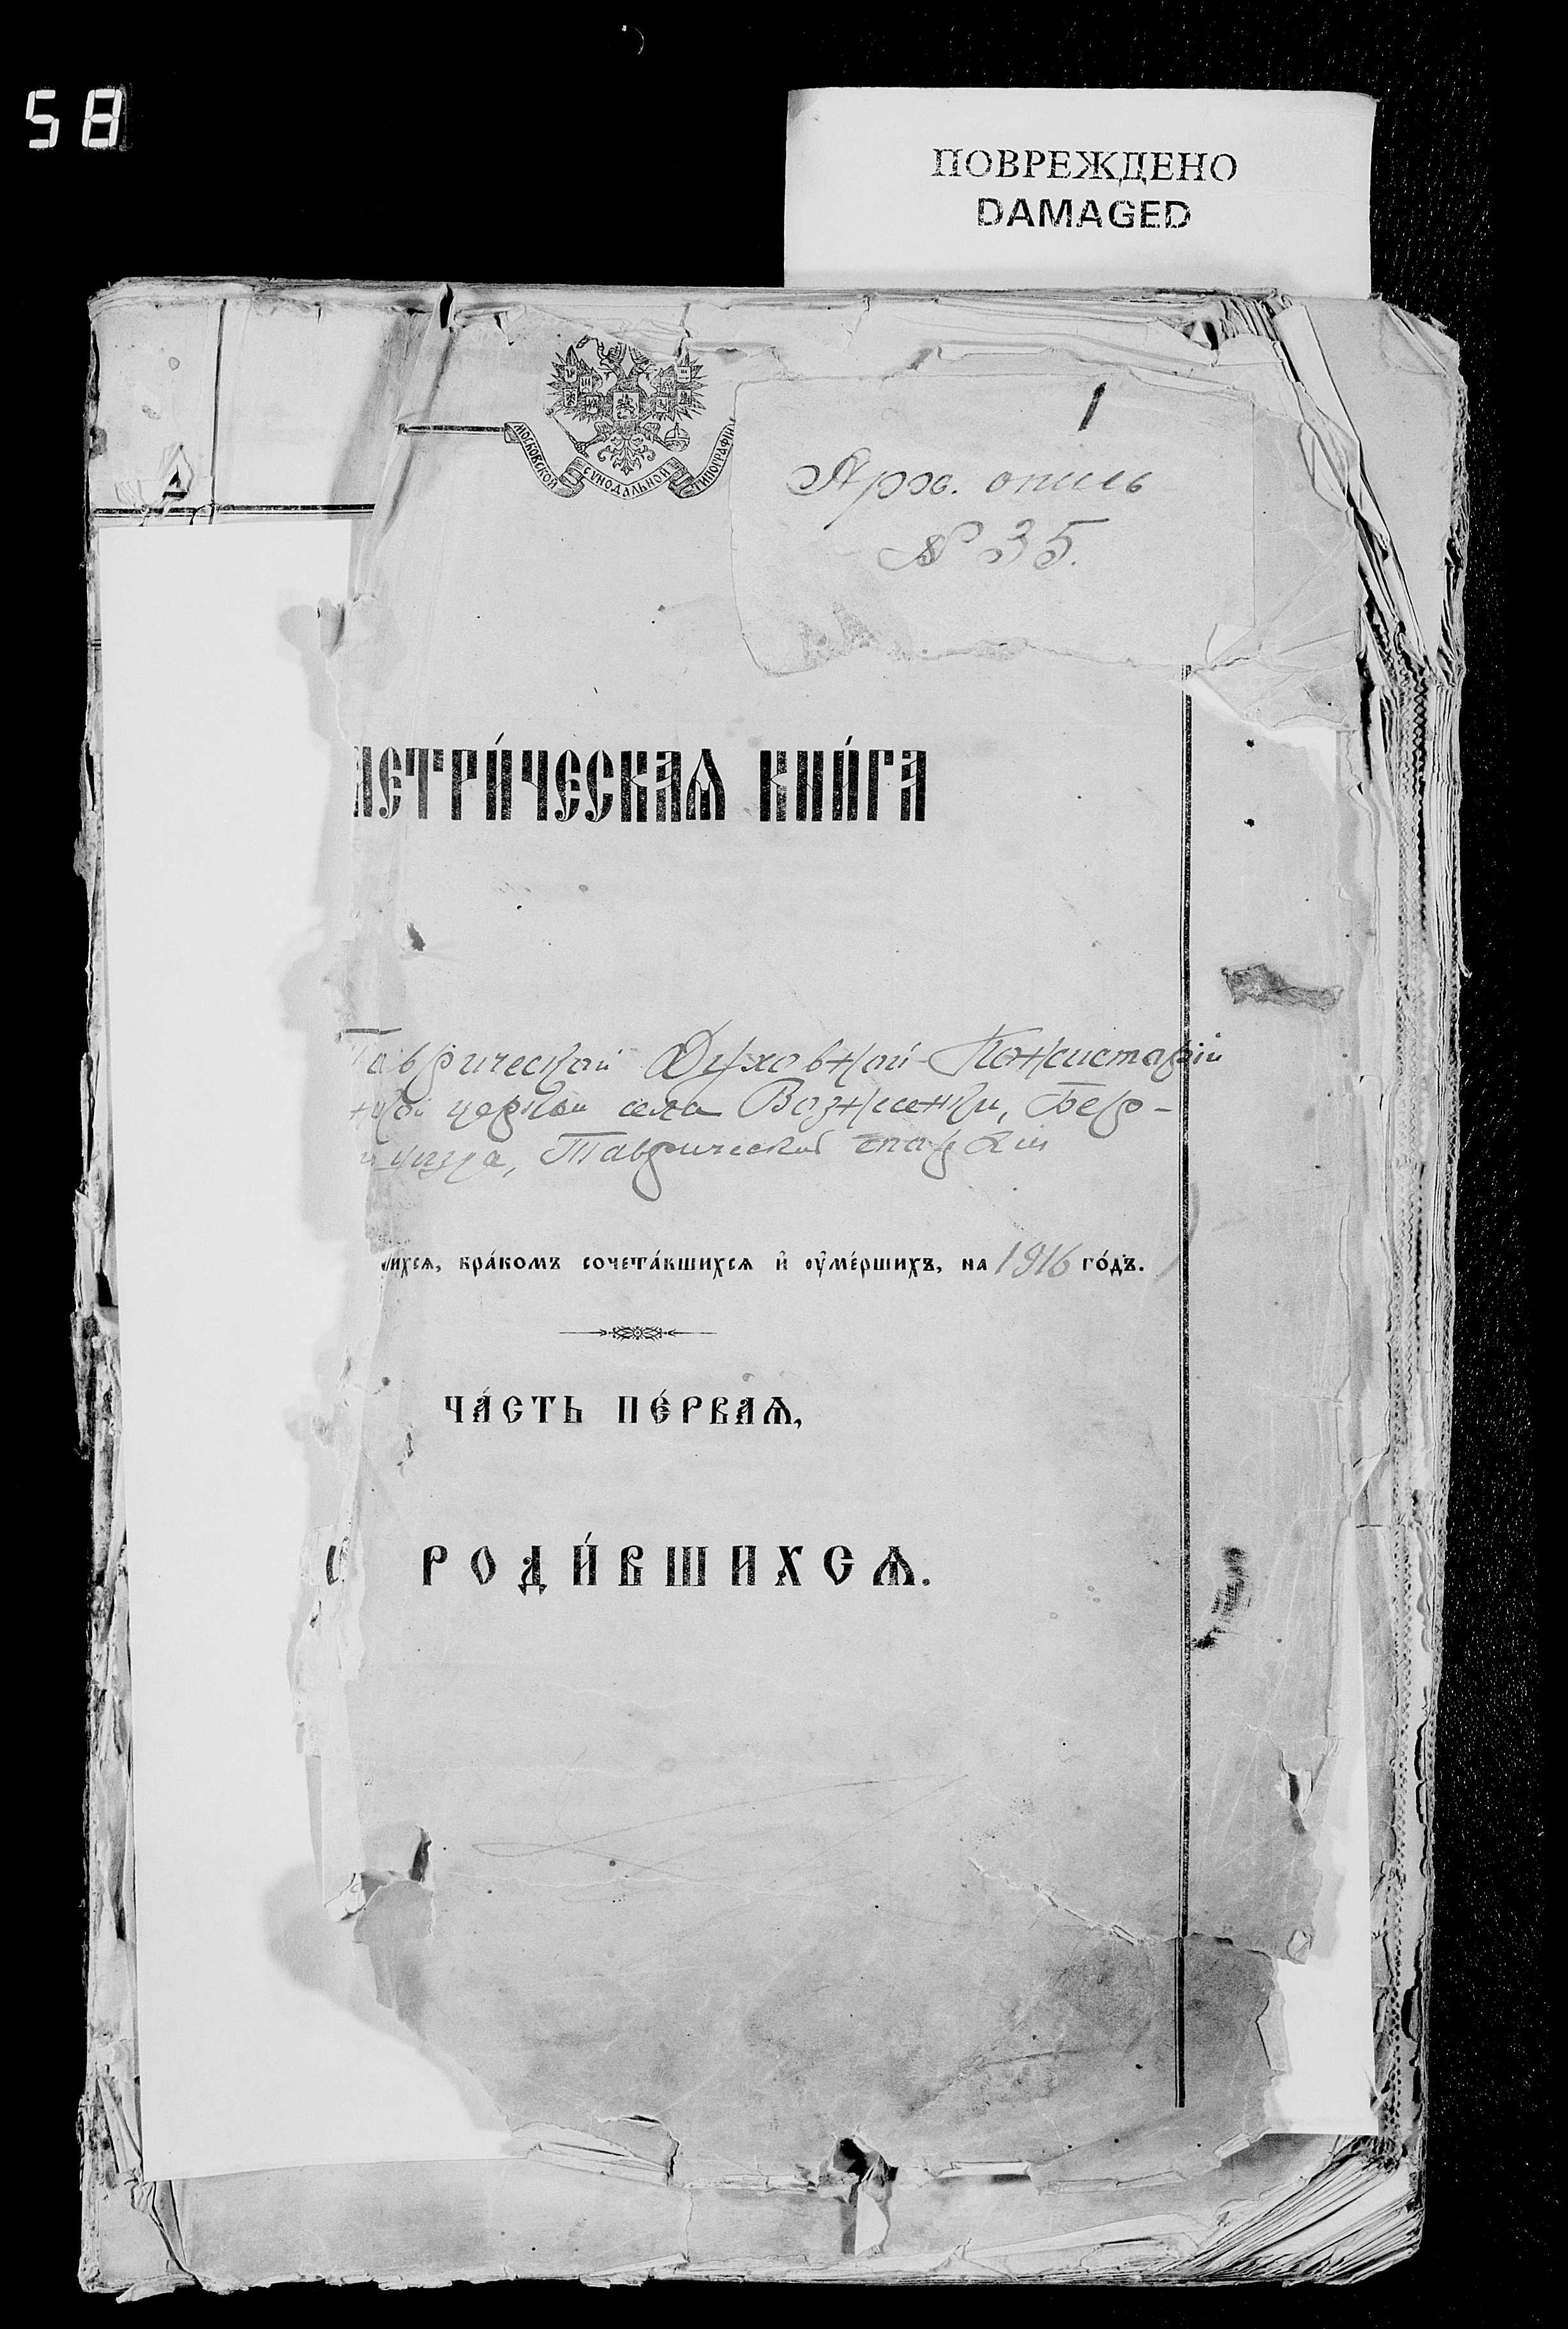 58
ПОВРЕЖДЕНО
DAMAGED
МОСКОВСКОЙ СѴНОДАЛЬНОЙ ТИПОГРАФІИ
1
Арх. опись
№ 35.
МЕТРИ́ЧЕСКАѦ КНИ́ГА
Таврической Духовной Консисторіи
церкви села Вознесенки, Бер-
уѣзда, Таврической епархіи
ихсѧ, бра́комъ сочета́вшихсѧ и҆ ѹ҆ме́ршихъ, на 1916 го́дъ.
ЧА́СТЬ ПЕ́РВАѦ,
РОДИ́ВШИХСѦ.